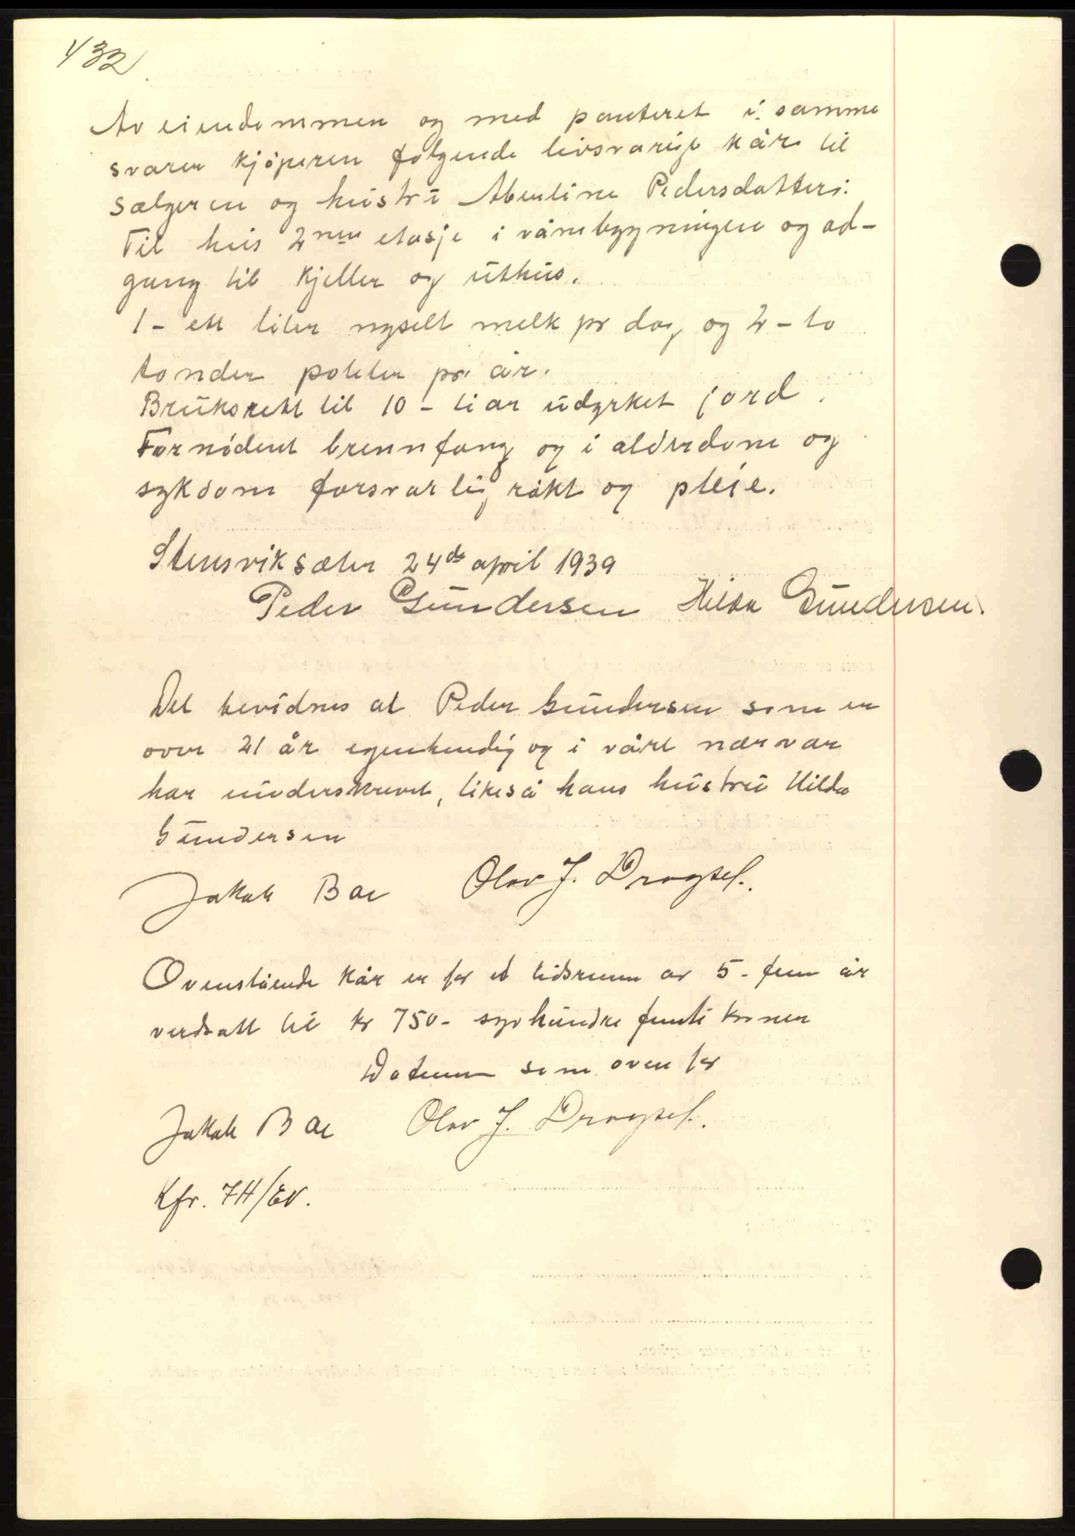 432
Av eiendommen og med panteret i samme
svarer kjøperen følgende livsvarige kår til
sælgeren og hustru Abeline Pedersdatter:
Til hus 2nen etasje i våningbygningen og ad-
gang til kjeller og uthus.
1 - ett liter nyselt melk pr dag og 2 - to
tønder poteter pr år.
Bruksrett til 10 - ti ar udyrket jord.
Fornødent brennfang og i alderdom og
sykdom forsvarlig røkt og pleie.
Stensviksæter 24de april 1939
Peder Gundersen Hilda Gundersen.
Det bevidnes at Peder Gundersen som er
over 21 år egenhendig og i vårt nærvær
har underskrevet, likeså hans hustru Hilda
Gundersen
Jakob Boe Olav J. Dragset.
Ovenstående kår er for et tidsrum av 5 - fem år
verdsatt til kr 750 - syvhundre femti kroner
Datum som oven for
Jakob Boe Olav J. Dragset.
Kfr. 7H/EN.